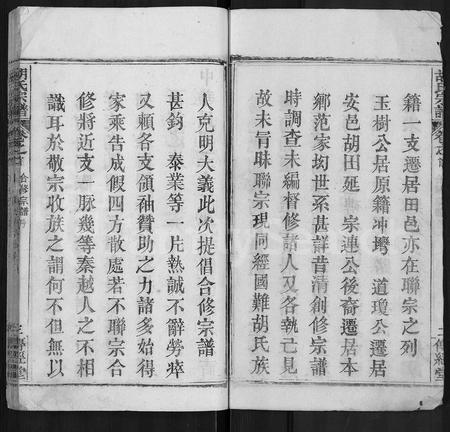 胡氏宗譜
卷之首
籍一支遷居田邑亦在聯宗之列
玉樹公居原籍冲塆 道瓊公遷居
安邑胡田延 宗連公後裔遷居本
鄉范家均世系甚詳昔清創修宗譜
時調查未編督修諸人又各執己見
故未肯昧聯宗現同經國難胡氏族
三傳經堂
人克明大義此次提倡合修宗譜
甚鈞 泰業等一片熱誠不辭勞瘁
又賴各支領袖贊助之力諸多始得
家乘告成假四方散處若不聯宗合
修將近支一脈幾等秦越人之不相
識耳於敬宗收族之謂何不但無以
胡氏宗譜
卷之首
合修宗譜
三傳經堂